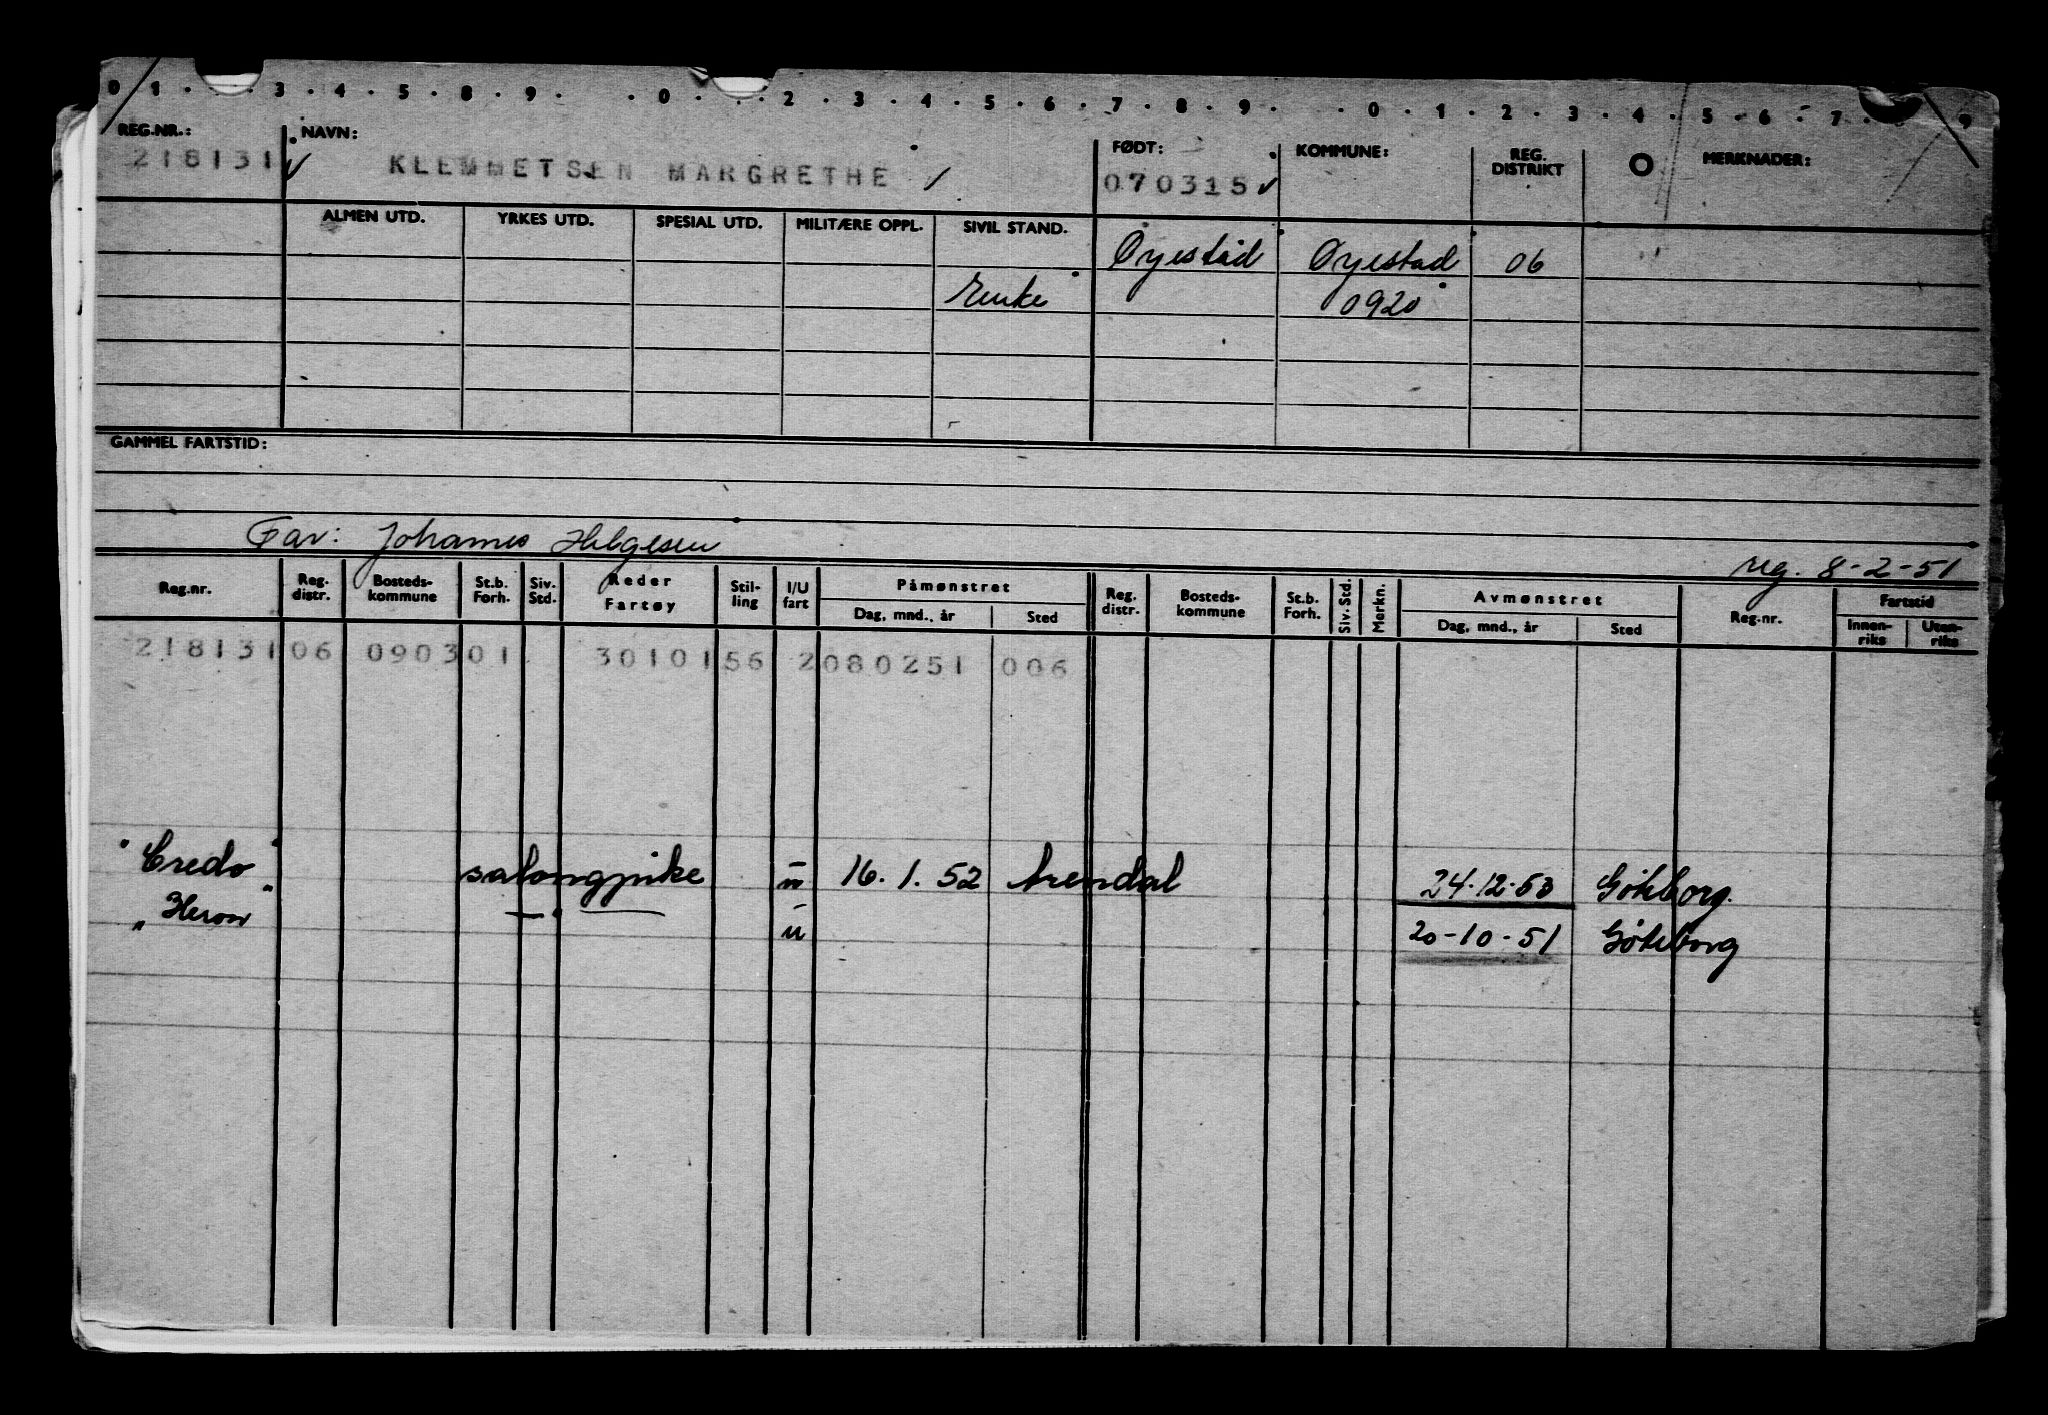 0 1 . . . 3 . 4 . 5 . 8 . 9 . . 0 . . . 2 . 3 . 4 . 5 . 6 . 7 . 8 . 9 . . 0 . 1 . 2 . 3 . 4 . 5 . 6 . 7 . 9
REG.NR.: NAVN: FØDT: KOMMUNE: REG. DISTRIKT O MERKNADER:
218131 ✓ KLEMMETSEN MARGRETHE ✓ 070315 ✓
ALMEN UTD. YRKES UTD. SPESIAL UTD. MILITÆRE OPPL. SIVIL STAND.
Øyestad Øyestad 06
Enke 0920
GAMMEL FARTSTID:
Far: Johannes Helgesen
reg. 8-2-51
Reg.nr. Reg. distr. Bosteds-kommune St.b. Forh. Siv. Std. Reder Fartøy Stil-ling I/U fart Påmønstret Dag, mnd., år Sted Reg. distr. Bosteds-kommune St.b. Forh. Siv. Std. Merkn. Avmønstret Dag, mnd., år Sted Reg.nr. Fartstid Innen-riks Uten-riks
218131 06 0903 01 30101 56 2 080251 006
"Credo" salongpike u 16.1.52 Arendal 24.12.53 Göteborg.
"Heron" — " — u 20-10-51 Göteborg